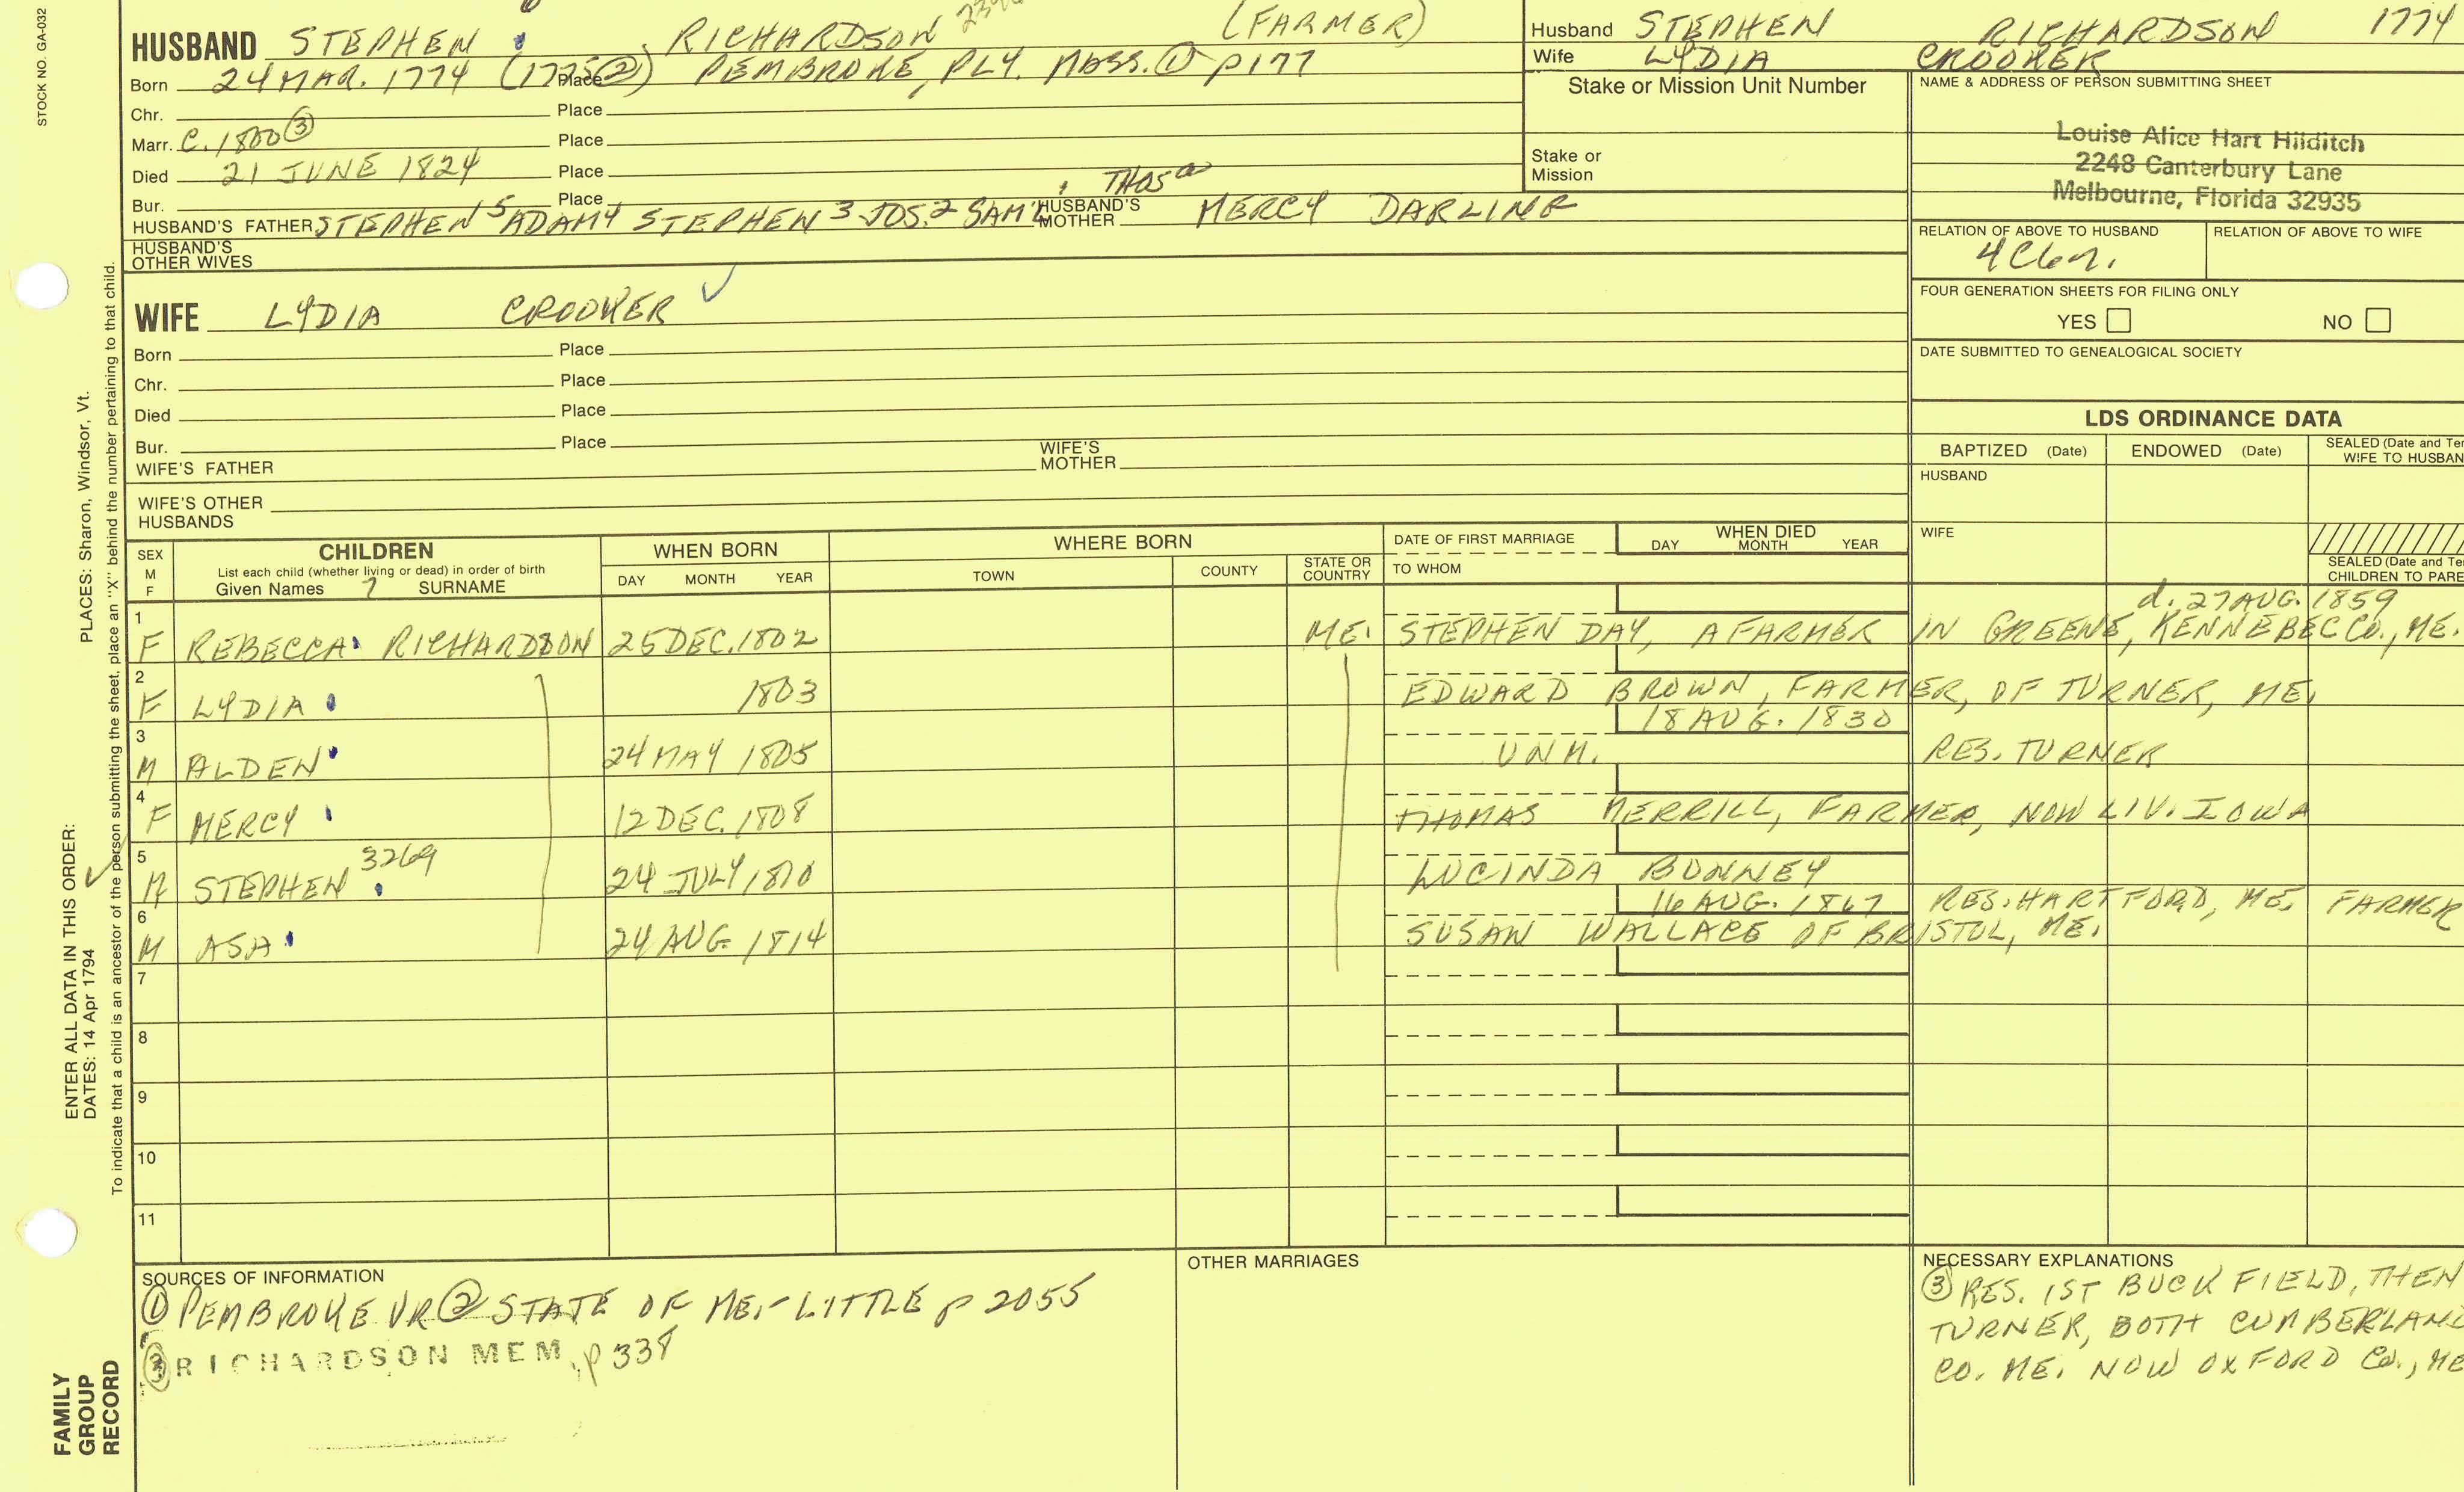 STOCK NO. GA-032
HUSBAND STEPHEN RICHARDSON (FARMER)
Born 24 MAR. 1774 (1775 ②) Place PEMBROKE, PLY. MASS. ① p177
Chr. Place
Marr. C. 1800 ③ Place
Died 21 JUNE 1824 Place
Bur. Place
THOS
HUSBAND'S FATHER STEPHEN 5 ADAM 4 STEPHEN 3 JOS. 2 SAM'L HUSBAND'S MOTHER MERCY DARLING
HUSBAND'S OTHER WIVES
Husband STEPHEN RICHARDSON 1774
Wife LYDIA CROOKER
Stake or Mission Unit Number
Stake or
Mission
NAME & ADDRESS OF PERSON SUBMITTING SHEET
Louise Alice Hart Hilditch
2248 Canterbury Lane
Melbourne, Florida 32935
RELATION OF ABOVE TO HUSBAND RELATION OF ABOVE TO WIFE
4C6r.
FOUR GENERATION SHEETS FOR FILING ONLY
YES NO
DATE SUBMITTED TO GENEALOGICAL SOCIETY
WIFE LYDIA CROOKER ✓
Born Place
Chr. Place
Died Place
Bur. Place
WIFE'S FATHER WIFE'S MOTHER
WIFE'S OTHER
HUSBANDS
LDS ORDINANCE DATA
BAPTIZED (Date) ENDOWED (Date) SEALED (Date and Ten
WIFE TO HUSBAN
HUSBAND
WIFE
SEALED (Date and Te
CHILDREN TO PARE
SEX M F CHILDREN WHEN BORN WHERE BORN DATE OF FIRST MARRIAGE WHEN DIED
List each child (whether living or dead) in order of birth
Given Names 7 SURNAME DAY MONTH YEAR TOWN COUNTY STATE OR COUNTRY TO WHOM DAY MONTH YEAR
d. 27 AUG. 1859
1 F REBECCA RICHARDSON 25 DEC. 1802 ME. STEPHEN DAY, A FARMER IN GREENE, KENNEBEC CO., ME.
2 F LYDIA 1803 EDWARD BROWN, FARMER, OF TURNER, ME.
18 AUG. 1830
3 M ALDEN 24 MAY 1805 UNM. RES. TURNER
4 F MERCY 12 DEC. 1808 THOMAS MERRILL, FARMER, NOW LIV. IOWA
3269
5 M STEPHEN 24 JULY 1810 LUCINDA BONNEY
16 AUG. 1867 RES. HARTFORD, ME. FARMER
6 M ASA 24 AUG. 1814 SUSAN WALLACE OF BRISTOL, ME.
7
8
9
10
11
SOURCES OF INFORMATION
① PEMBROKE VR ② STATE OF ME. - LITTLE p 2055
③ RICHARDSON MEM. p 338
OTHER MARRIAGES
NECESSARY EXPLANATIONS
③ RES. 1ST BUCKFIELD, THEN
TURNER, BOTH CUMBERLAND
CO. ME. NOW OXFORD CO., ME
PLACES: Sharon, Windsor, Vt.
ENTER ALL DATA IN THIS ORDER:
DATES: 14 Apr 1794
To indicate that a child is an ancestor of the person submitting the sheet, place an "X" behind the number pertaining to that child.
FAMILY
GROUP
RECORD